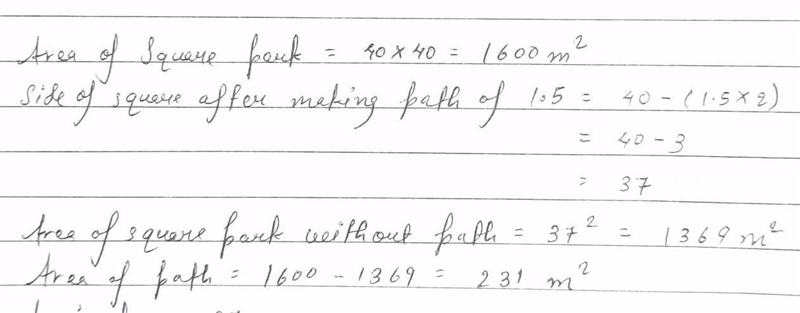 Area of Square park = 40 x 40 = 1600 m²
Side of square after making path of 1.5 = 40 - (1.5 x 2)
= 40 - 3
= 37
Area of square park without path = 37² = 1369 m²
Area of path = 1600 - 1369 = 231 m²